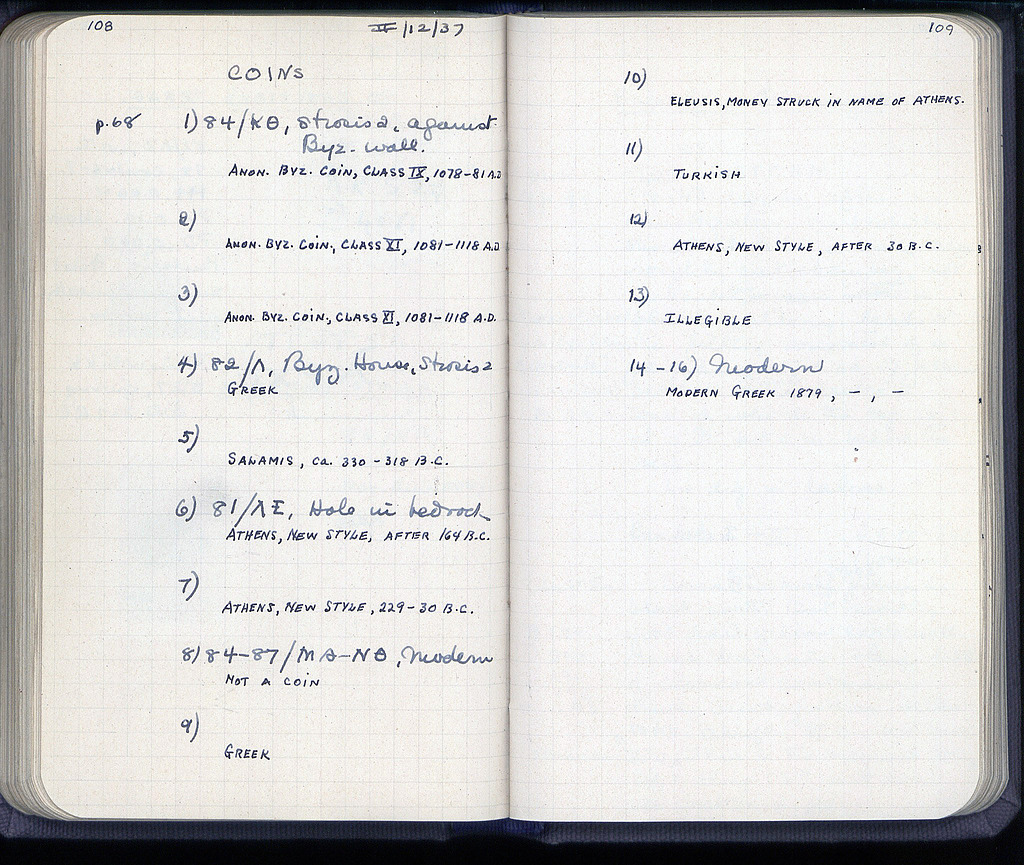 108
II/12/37
COINS
p.68
1) 84/ΚΘ, Strosis 2, against
Byz. wall.
ANON. BYZ. COIN, CLASS IX, 1078-81 A.D
2)
ANON. BYZ. COIN., CLASS XI, 1081-1118 A.D
3)
ANON. BYZ. COIN., CLASS XI, 1081-1118 A.D.
4) 82/Λ, Byz. House, Strosis 2
GREEK
5)
SALAMIS, ca. 330-318 B.C.
6) 81/ΛΕ, Hole in bedrock
ATHENS, NEW STYLE, AFTER 164 B.C.
7)
ATHENS, NEW STYLE, 229-30 B.C.
8) 84-87/ΜΘ-ΝΘ, Modern
NOT A COIN
9)
GREEK
109
10)
ELEUSIS, MONEY STRUCK IN NAME OF ATHENS.
11)
TURKISH
12)
ATHENS, NEW STYLE, AFTER 30 B.C.
13)
ILLEGIBLE
14-16) Modern
MODERN GREEK 1879, -, -